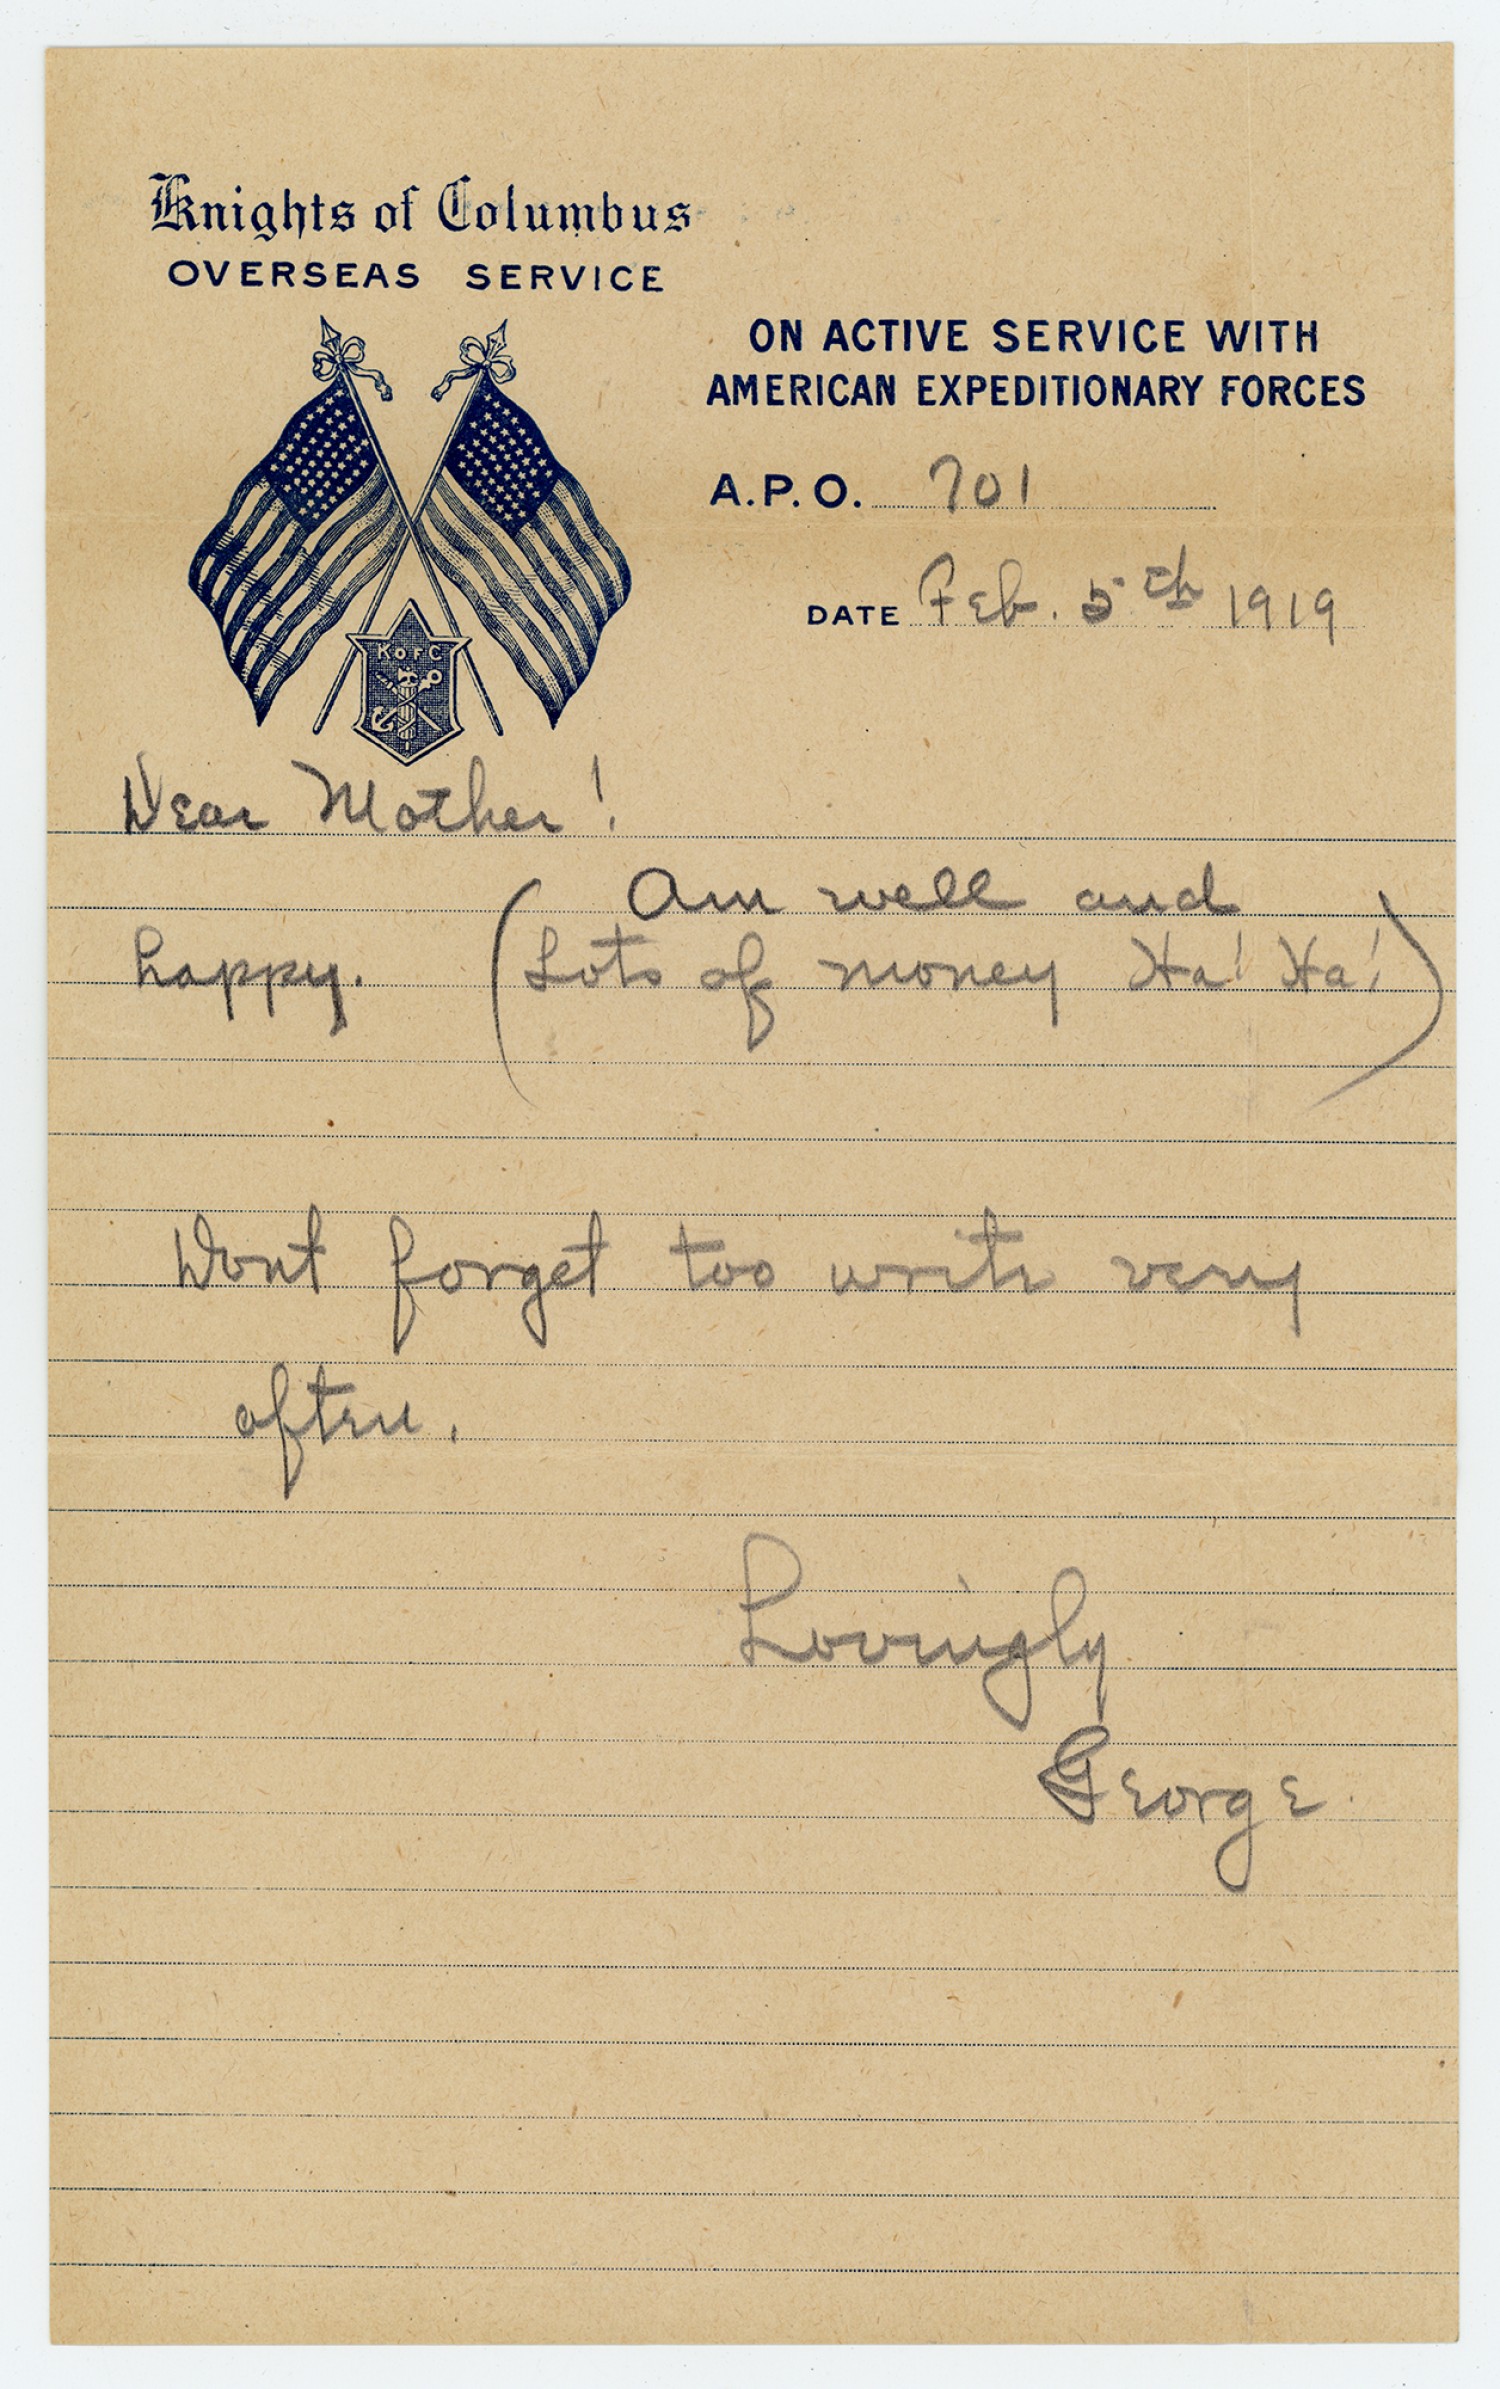 Knights of Columbus
OVERSEAS SERVICE
ON ACTIVE SERVICE WITH
AMERICAN EXPEDITIONARY FORCES
A.P.O. 701
DATE Feb. 5th 1919
K OF C
Dear Mother!
Am well and
happy. (Lots of money Ha! Ha!)
Dont forget too write very
often.
Lovingly
George.